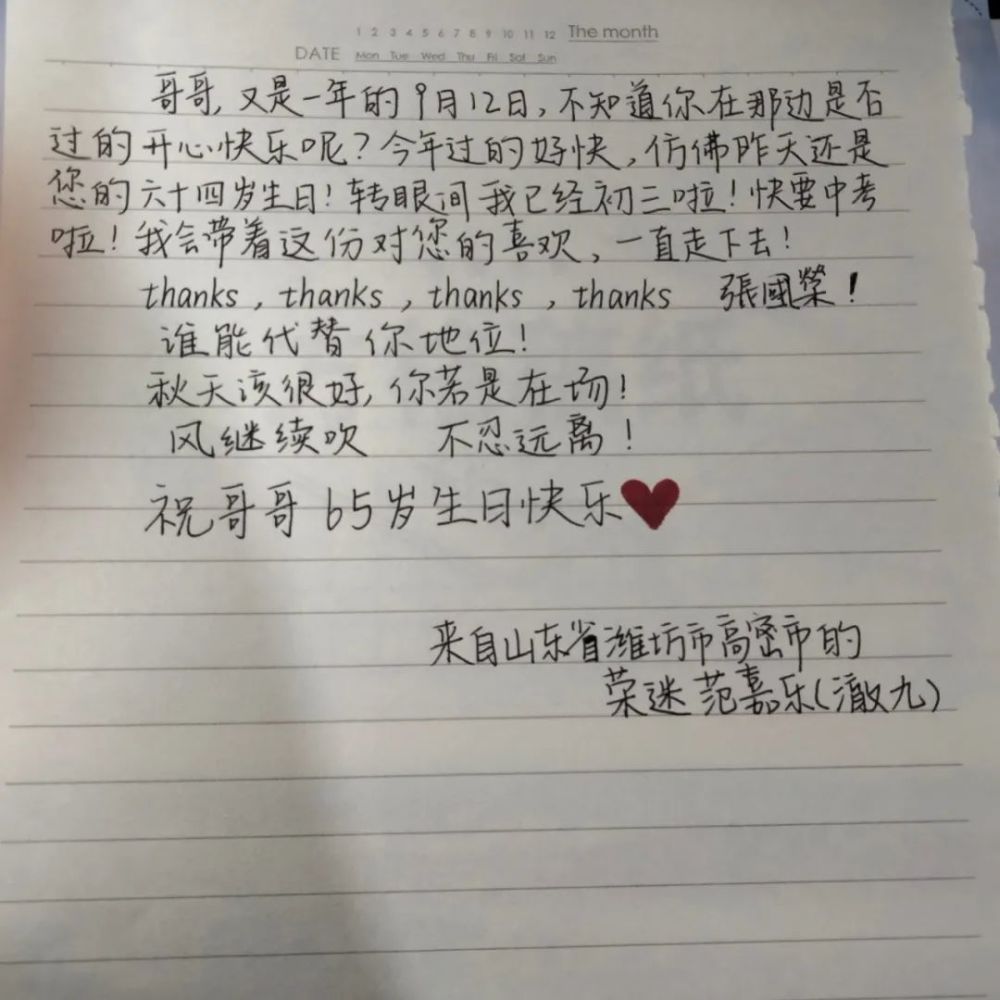 1 2 3 4 5 6 7 8 9 10 11 12 The month
DATE Mon Tue Wed Thu Fri Sat Sun
哥哥,又是一年的9月12日,不知道你在那边是否
过的开心快乐呢?今年过的好快,仿佛昨天还是
您的六十四岁生日!转眼间我已经初三啦!快要中考
啦!我会带着这份对您的喜欢、一直走下去!
thanks,thanks,thanks,thanks 張國榮!
谁能代替你地位!
秋天该很好,你若是在场!
风继续吹 不忍远离!
祝哥哥65岁生日快乐
来自山东省潍坊市高密市的
荣迷范嘉乐(澈九)